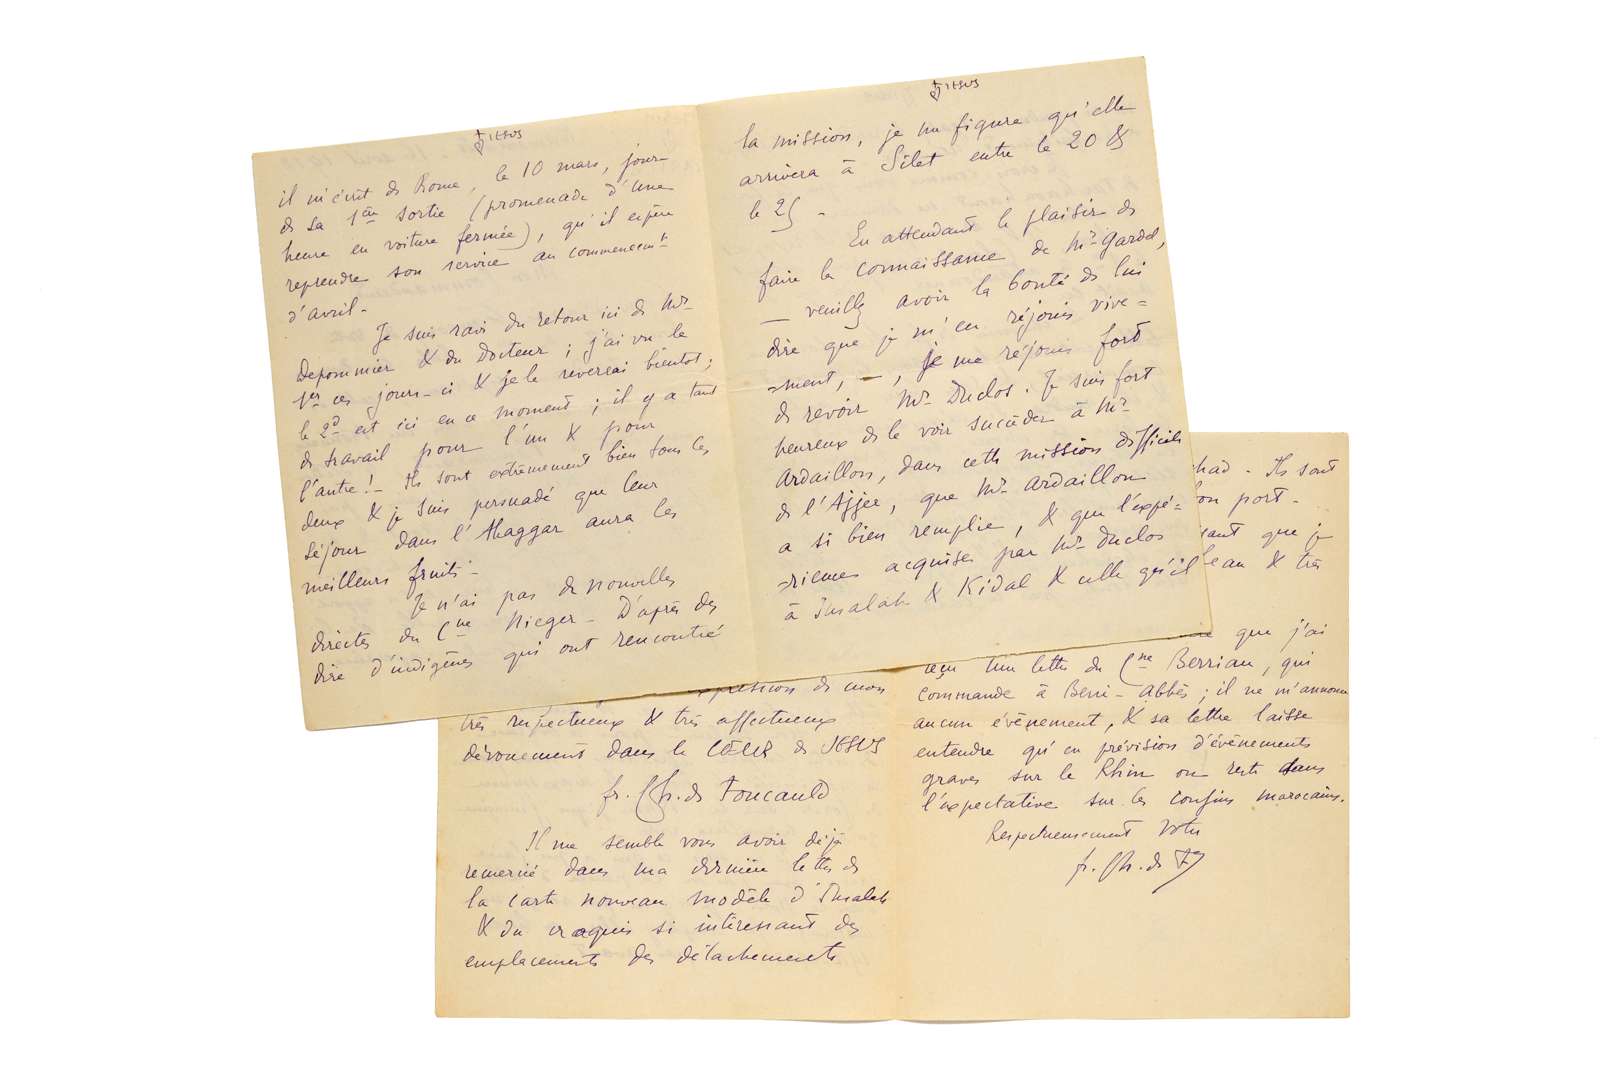 JESUS
il m'écrit de Rome, le 10 mars, jour
de sa 1ère sortie (promenade d'une
heure en voiture fermée), qu'il espère
reprendre son service au commencemt
d'avril.
Je suis ravi du retour ici de Mr
Depommier & du Docteur ; j'ai vu le
1er ces jours-ci & je le reverrai bientot ;
le 2d est ici en ce moment ; il y a tant
de travail pour l'un & pour
l'autre ! _ Ils sont extrêmement bien tous les
deux & je suis persuadé que leur
séjour dans l'Ahaggar aura les
meilleurs fruits _
Je n'ai pas de nouvelles
directes du Cne Nieger _ D'après des
dire d'indigènes qui ont rencontré
JESUS
la mission, je me figure qu'elle
arrivera à Silet entre le 20 &
le 25 _
En attendant le plaisir de
faire la connaissance de Mr Gardel,
_ veuillez avoir la bonté de lui
dire que je m'en réjouis vive=
=ment, _ , je me réjouis fort
de revoir Mr Duclos. Je suis fort
heureux de le voir succéder à Mr
Ardaillon, dans cette mission difficile
de l'Ajjer, que Mr Ardaillon
a si bien remplie, & que l'expé=
=rience acquise par Mr Duclos
à Insalah & Kidal & celle qu'il
expression de mon
très respectueux & très affectueux
dévouement dans le CŒUR de JESUS
fr. Ch. de Foucauld
Il me semble vous avoir déjà
remercié dans ma dernière lettre de
la carte nouveau modèle d'Insalah
& du croquis si intéressant des
emplacements des détachements
had. Ils sont
bon port _
sant que je
eau & très
que j'ai
reçu une lettre du Cne Berriau, qui
commande à Beni-Abbès ; il ne m'annonce
aucun évènement, & sa lettre laisse
entendre qu'en prévision d'évènements
graves sur le Rhin on reste dans
l'expectative sur les confins marocains.
Respectueusement votre
fr. Ch. de F